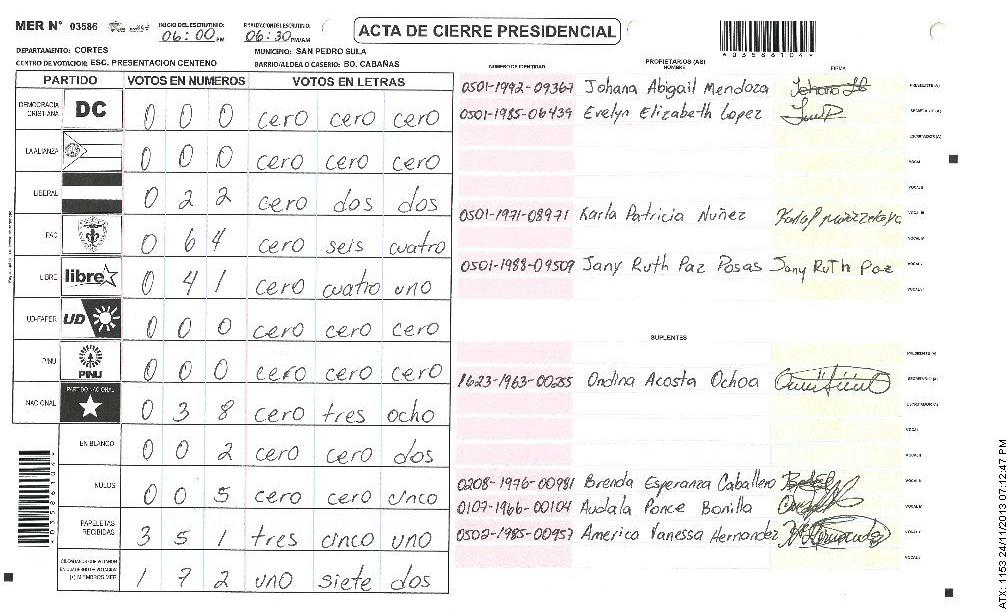 MER N° 03586 INICIO DEL ESCRUTINIO: 06:00 PM FINALIZACION ESCRUTINIO: 06:30 PM/AM ACTA DE CIERRE PRESIDENCIAL
DEPARTAMENTO: CORTES MUNICIPIO: SAN PEDRO SULA
CENTRO DE VOTACION: ESC. PRESENTACION CENTENO BARRIO/ALDEA O CASERIO: BO. CABAÑAS
PARTIDO VOTOS EN NUMEROS VOTOS EN LETRAS
DEMOCRACIA CRISTIANA DC 0 0 0 cero cero cero
LA ALIANZA 0 0 0 cero cero cero
LIBERAL 0 2 2 cero dos dos
PAC 0 6 4 cero seis cuatro
LIBRE libre 0 4 1 cero cuatro uno
UD-FAPER UD 0 0 0 cero cero cero
PINU PINU 0 0 0 cero cero cero
NACIONAL PARTIDO NACIONAL 0 3 8 cero tres ocho
EN BLANCO 0 0 2 cero cero dos
NULOS 0 0 5 cero cero cinco
PAPELETAS RECIBIDAS 3 5 1 tres cinco uno
CIUDADANOS QUE VOTARON EN CUADERNO DE VOTACION (+) MIEMBROS MER 1 7 2 uno siete dos
PROPIETARIOS (AS)
NUMERO DE IDENTIDAD NOMBRE FIRMA
0501-1992-09367 Johana Abigail Mendoza PRESIDENTE (A)
0501-1985-06439 Evelyn Elizabeth Lopez SECRETARIO (A)
ESCRUTADOR (A)
VOCAL I
VOCAL II
0501-1971-08971 Karla Patricia Nuñez VOCAL III
VOCAL IV
0501-1988-09509 Jany Ruth Paz Posas Jany Ruth Paz VOCAL V
VOCAL VI
SUPLENTES
PRESIDENTE (A)
1623-1963-00255 Ondina Acosta Ochoa SECRETARIO (A)
ESCRUTADOR (A)
VOCAL I
VOCAL II
0208-1976-00981 Brenda Esperanza Caballero VOCAL III
0107-1966-00104 Audala Ponce Bonilla VOCAL IV
0502-1985-00957 America Vanessa Hernandez VOCAL V
VOCAL VI
ATX: 1153 24/11/2013 07:12:47 PM